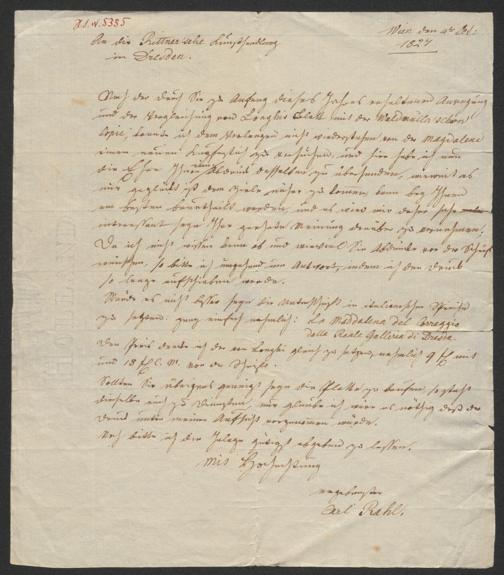 A.L.W. 5335
Wien den 4ten Oct:
1827
An die Rittner'sche Kunsthandlung
in Dresden.
Nach der durch Sie zu Anfang dieses Jahres erhaltenen Anregung
und der Vergleichung von Longhis Blatt mit der Waldmüller schön
Copie, konnte ich dem Verlangen nicht widerstehen von der Magdalena
einen neuen Kupferstich zu versuchen, und hier habe ich nun
die Ehre Ihnen Abdruck desselben zu übersenden, wieweit es
mir geglückt ist dem Ziele näher zu kommen kann bey Ihnen
am besten beurtheilt werden, und es wird mir daher sehr
interessant seyn Ihre geehrte Meinung darüber zu vernehmen.
Da ich nicht wissen kann ob und wieviel Sie Abdrücke vor der Schrift
wünschen, so bitte ich umgehend um Antwort, indem ich den Druck
so lange aufschieben werde.
Würde es nicht besser seyn die Unterschrift in italienischer Sprache
zu setzen: ganz einfach nehmlich: La Maddalena del Correggio
della Reale Galleria di Dresda.
Den Preis denke ich dem von Longhi gleich zu setzen, nehmlich 9 fl mit
und 18 fl C. M. vor der Schrift.
Sollten Sie übrigens geneigt seyn die Platte zu kaufen, so steht
dieselbe auch zu Diensten, nur glaube ich wäre es nöthig daß der
Druck unter meiner Aufsicht vorgenommen würde.
Noch bitte ich die gütigst abgeben zu lassen.
Mit Hochachtung
ergebenster
Carl Rahl.